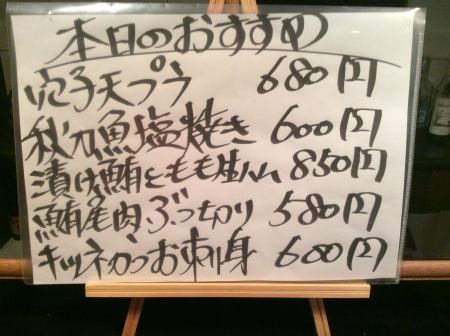 本日のおすすめ
穴子天プラ 680円
秋刀魚塩焼き 600円
漬け鮪ともも生ハム 850円
鮪尾肉ぶつ切り 580円
キツネがつお刺身 600円